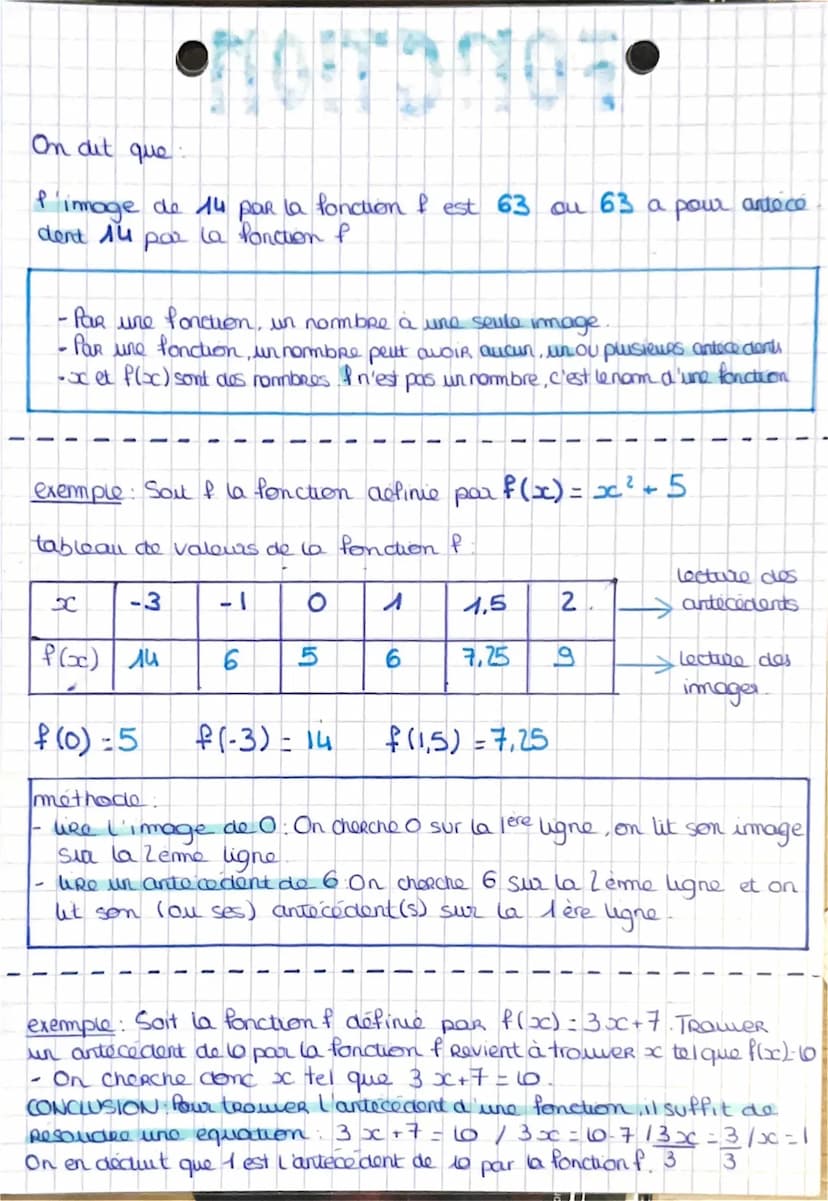 On dit que :
l'image de 14 par la fonction f est 63 ou 63 a pour antécé
dent 14 par la fonction f
- Par une fonction, un nombre à une seule image.
- Par une fonction, un nombre peut avoir aucun, un ou plusieurs antécédents
- x et f(x) sont des nombres. f n'est pas un nombre, c'est le nom d'une fonction
exemple : Soit f la fonction définie par f(x) = x² + 5
tableau de valeurs de la fonction f :
x -3 -1 0 1 1,5 2 → lecture des antécédents
f(x) 14 6 5 6 7,25 9 → lecture des images
f(0) = 5 f(-3) = 14 f(1,5) = 7,25
méthode :
- lire l'image de 0 : On cherche 0 sur la 1ère ligne, on lit son image
sur la 2ème ligne.
- lire un antécédent de 6 : On cherche 6 sur la 2ème ligne et on
lit son (ou ses) antécédent(s) sur la 1ère ligne.
exemple : Soit la fonction f définie par f(x) = 3x+7. Trouver
un antécédent de 10 par la fonction f revient à trouver x tel que f(x)=10
- On cherche donc x tel que 3x+7 = 10.
CONCLUSION : Pour trouver l'antécédent d'une fonction, il suffit de
résoudre une equation : 3x+7 = 10 / 3x = 10-7 / 3x/3 = 3/3 / x = 1
On en déduit que 1 est l'antécédent de 10 par la fonction f.